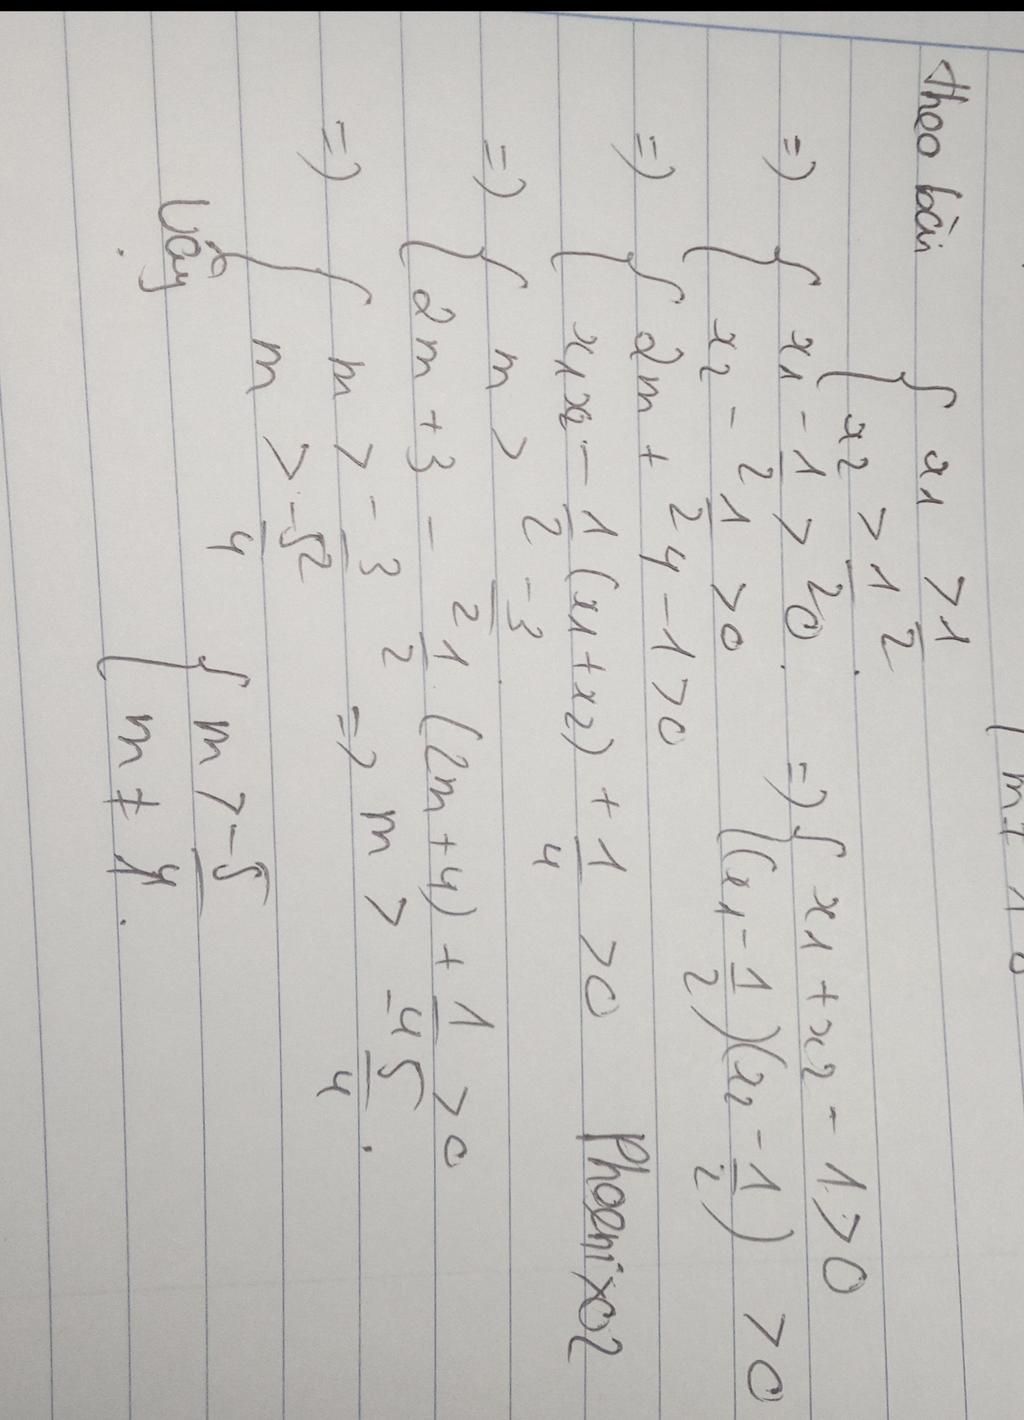 m ≠ 1
Theo bài { x1 > 1/2
x2 > 1/2
=> { x1 - 1/2 > 0 => { x1 + x2 - 1 > 0
x2 - 1/2 > 0 (x1 - 1/2)(x2 - 1/2) > 0
=> { 2m + 4 - 1 > 0
x1x2 - 1/2 (x1 + x2) + 1/4 > 0 Phoenix02
=> { m > -3/2
2m + 3 - 1/2 . (2m + 4) + 1/4 > 0
=> { m > -3/2 => m > -5/4 .
m > -5/4
Vậy { m > -5/4
m ≠ 1 .